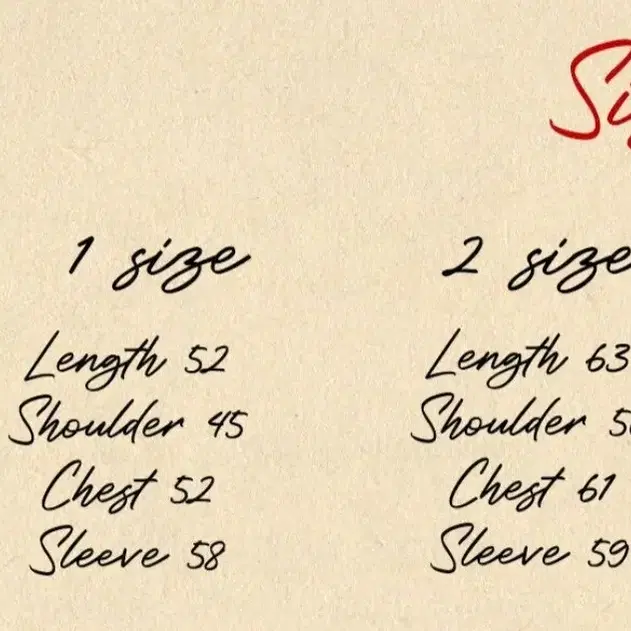 1 size
Length 52
Shoulder 45
Chest 52
Sleeve 58
2 size
Length 63
Shoulder
Chest 61
Sleeve 59